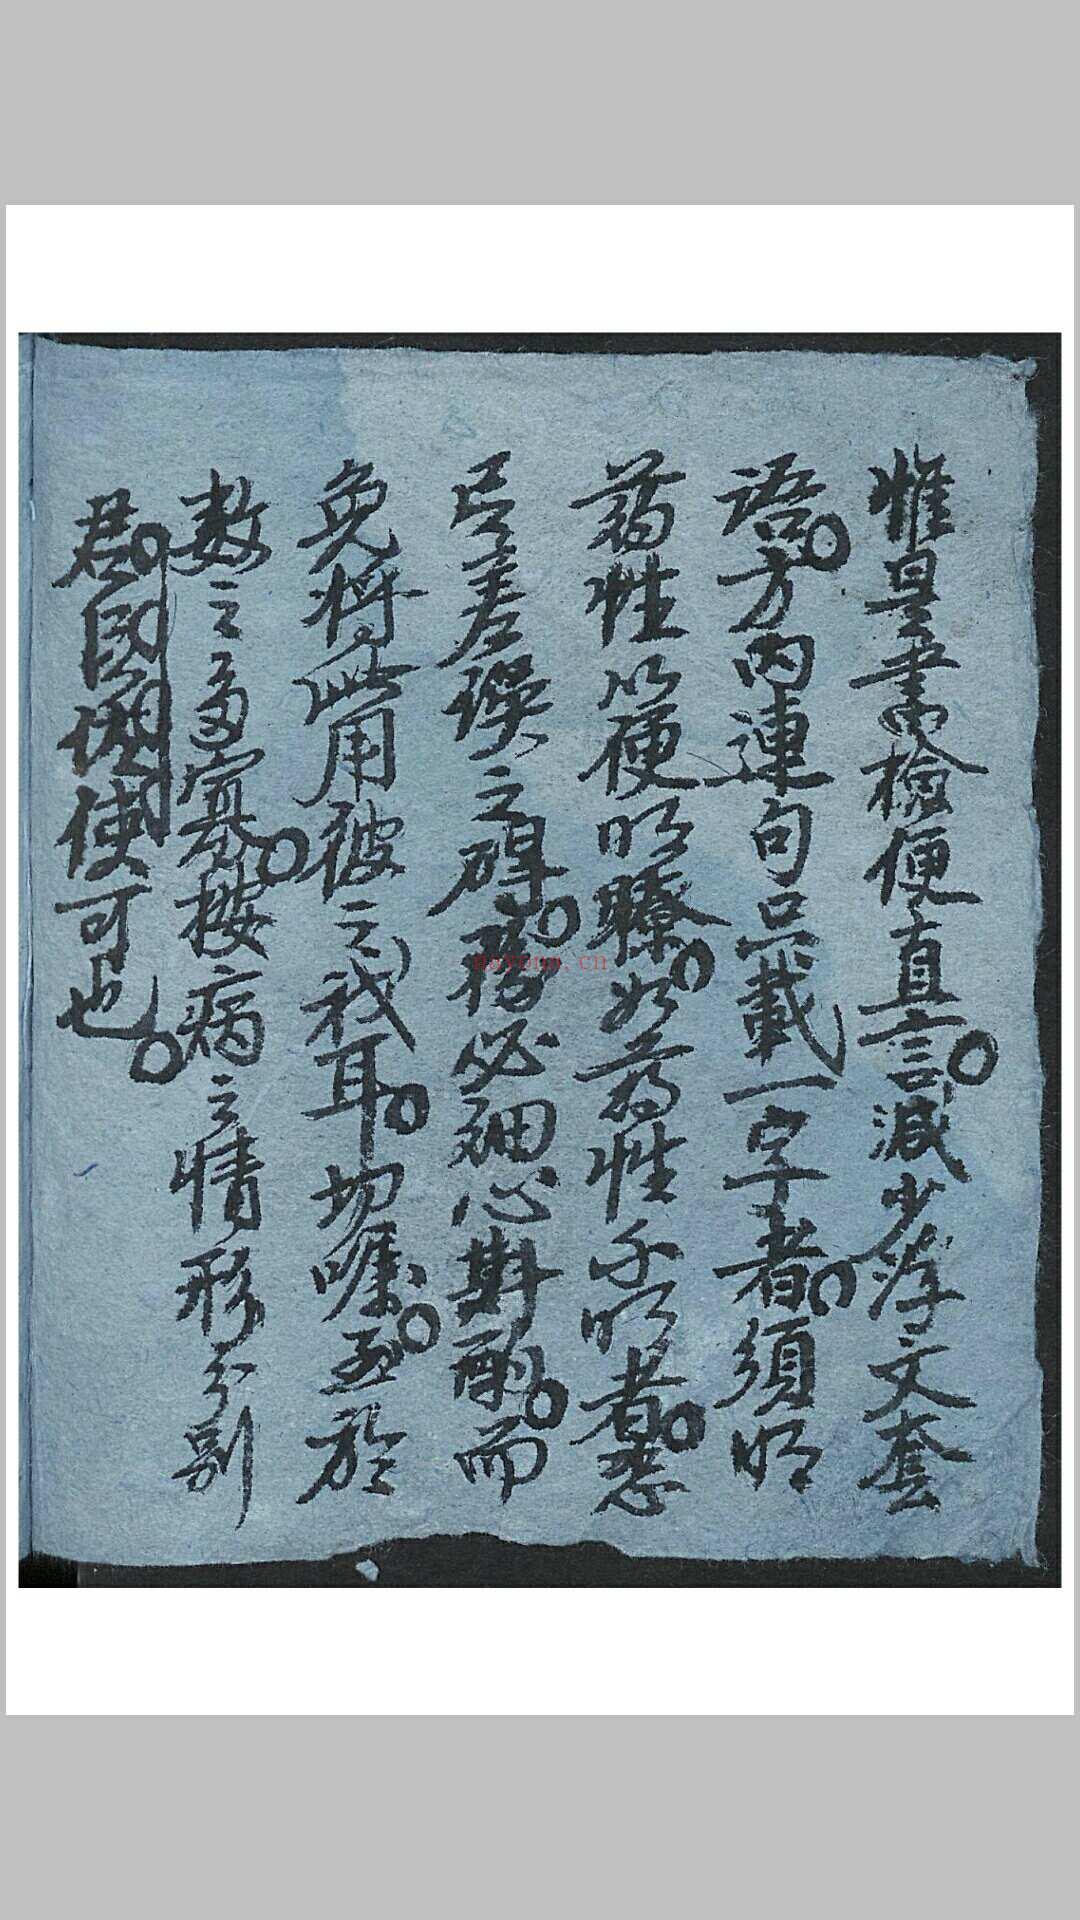 惟是書檢便直言減少浮文套
語方內連句只載一字者須明
药性以便明瞭如药性不明者恐
有差誤之碍務必細心斟酌而
免将此用彼之我耳切嘱至於
数之多寡按病之情形分别
君臣佐使可也
aoyona.cn